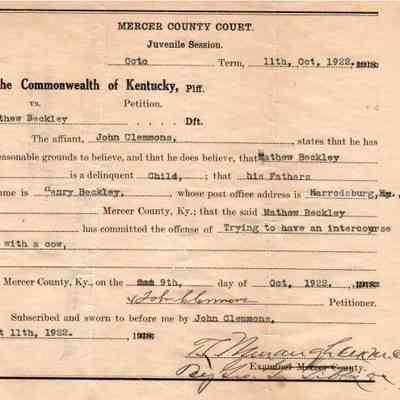 MERCER COUNTY COURT.
Juvenile Session.
Octo Term, 11th, Oct, 1922, 1918
he Commonwealth of Kentucky, Plf.
vs. Petition.
thew Beckley Dft.
The affiant, John Clemmons, states that he has
easonable grounds to believe, and that he does believe, that Mathew Beckley
is a delinquent Child, ; that his Fathers
me is Henry Beckley, whose post office address is Harrodsburg, Ky.,
Mercer County, Ky.; that the said Mathew Beckley
has committed the offense of Trying to have an intercourse
with a cow,
Mercer County, Ky., on the 9th, day of Oct, 1922. 1918
John Clemmons Petitioner.
Subscribed and sworn to before me by John Clemmons,
t 11th, 1922. , 1918
Mercer County.
By